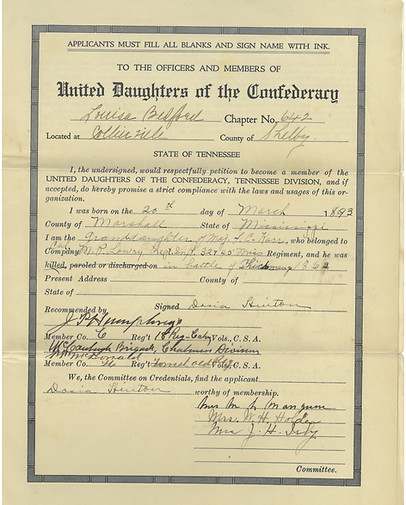 APPLICANTS MUST FILL ALL BLANKS AND SIGN NAME WITH INK.
TO THE OFFICERS AND MEMBERS OF
United Daughters of the Confederacy
Louisa Bedford Chapter No. 642
Located at Collierville County of Shelby
STATE OF TENNESSEE
I, the undersigned, would respectfully petition to become a member of the
UNITED DAUGHTERS OF THE CONFEDERACY, TENNESSEE DIVISION, and if
accepted, do hereby promise a strict compliance with the laws and usages of this or-
ganization.
I was born on the 20th day of March 1893
County of Marshall State of Mississippi
I am the Granddaughter of Maj. who belonged to
Company M. P. Lowry 32 & 45 Miss Regiment, and he was
killed, paroled or discharged on in battle of
Present Address County of
State of
Recommended by Signed Dasia Hinton
J. P. Humphreys
Member Co. C Reg't 18 Vols., C. S. A.
McCaulough Brigade, Chalmers Division
McDonald
Member Co. Reg't Vols., C. S. A.
We, the Committee on Credentials, find the applicant
Dasia Hinton worthy of membership.
Mrs M. L. Mangum
Mrs. W. H. Holden
Mrs J. H. Irby
Committee.